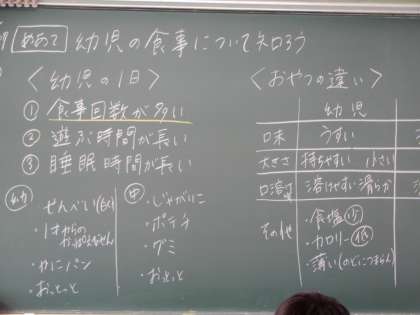 めあて 幼児の食事について知ろう
＜幼児の1日＞
① 食事回数が多い
② 遊ぶ時間が長い
③ 睡眠時間が長い
幼
せんべい
・1才からの
・かにパン
・おっとっと
中
・じゃがりこ
・ポテチ
・グミ
・おっとっと
＜おやつの違い＞
幼児
味 うすい
大きさ 持ちやすい 小さい
口溶け 溶けやすい 滑らか
その他
・食塩 少
・カロリー 低
・薄い(のどにつまらん)